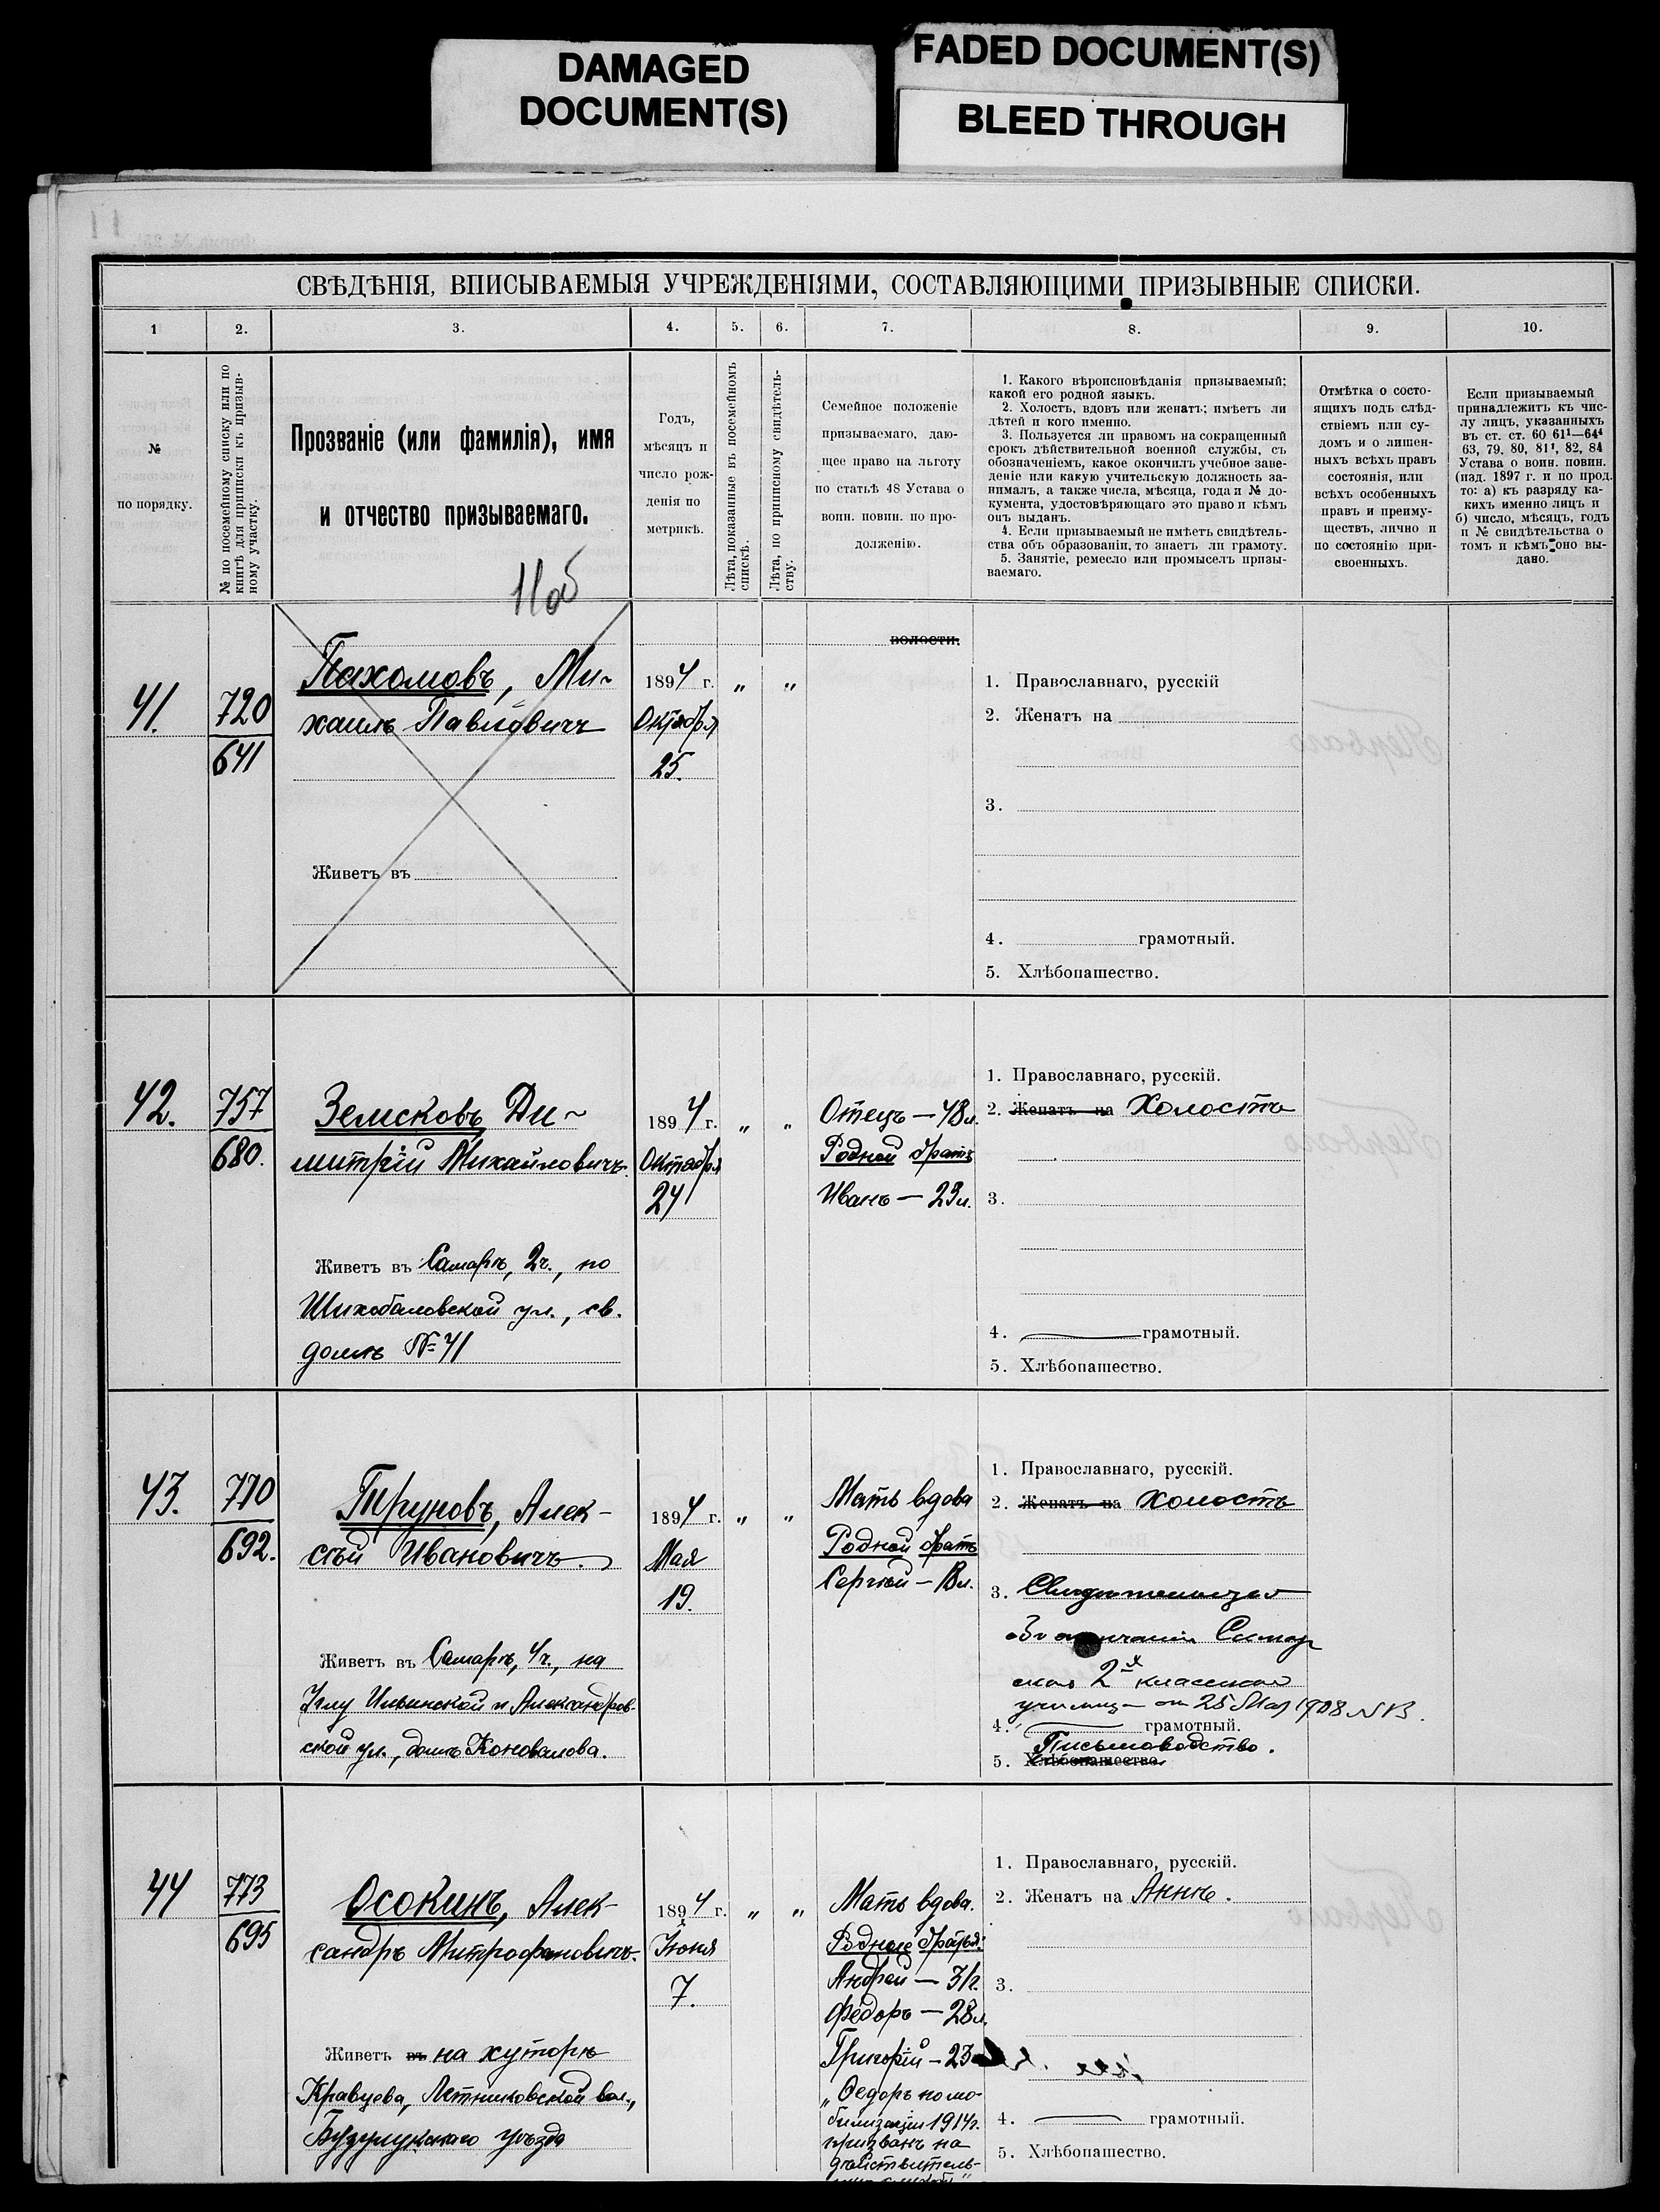 DAMAGED
DOCUMENT(S)
FADED DOCUMENT(S)
BLEED THROUGH
СВѢДѢНІЯ, ВПИСЫВАЕМЫЯ УЧРЕЖДЕНІЯМИ, СОСТАВЛЯЮЩИМИ ПРИЗЫВНЫЕ СПИСКИ.
1
2.
3.
4.
5.
6.
7.
8.
9.
10.
№
по порядку.
№ по посемейному списку или по
книгѣ для приписки къ призыв-
ному участку.
Прозваніе (или фамилія), имя
и отчество призываемаго.
11об
Годъ,
мѣсяцъ и
число рож-
денія по
метрикѣ.
Лѣта, показанные въ посемейномъ
спискѣ.
Лѣта, по приписному свидѣтель-
ству.
Семейное положеніе
призываемаго, даю-
щее право на льготу
по статьѣ 48 Устава о
воин. повин. по про-
долженію.
1. Какого вѣроисповѣданія призываемый;
какой его родной языкъ.
2. Холостъ, вдовъ или женатъ; имѣетъ ли
дѣтей и кого именно.
3. Пользуется ли правомъ на сокращенный
срокъ дѣйствительной военной службы, съ
обозначеніемъ, какое окончилъ учебное заве-
деніе или какую учительскую должность за-
нималъ, а также числа, мѣсяца, года и № до-
кумента, удостовѣряющаго это право и кѣмъ
онъ выданъ.
4. Если призываемый не имѣетъ свидѣтель-
ства объ образованіи, то знаетъ ли грамоту.
5. Занятіе, ремесло или промыселъ призы-
ваемаго.
Отмѣтка о состо-
ящихъ подъ слѣд-
ствіемъ или су-
домъ и о лишен-
ныхъ всѣхъ правъ
состоянія, или
всѣхъ особенныхъ
правъ и преиму-
ществъ, лично и
по состоянію при-
своенныхъ.
Если призываемый
принадлежитъ къ чис-
лу лицъ, указанныхъ
въ ст. ст. 60 61¹—64⁴
63, 79, 80, 81¹, 82, 84
Устава о воин. повин.
(изд. 1897 г. и по прод.
то: а) къ разряду ка-
кихъ именно лицъ и
б) число, мѣсяцъ, годъ
и № свидѣтельства о
томъ и кѣмъ оно вы-
дано.
41.
720
641
Пахомовъ, Ми-
хаилъ Павловичъ
Живетъ въ
1894 г.
Октября
25.
„
„
волости.
1. Православнаго, русскій
2. Женатъ на
3.
4. грамотный.
5. Хлѣбопашество.
42.
757
680.
Земсковъ, Ди-
митрій Михайловичъ.
Живетъ въ Самарѣ, 2 ч., по
Шихобаловской ул., св.
домъ № 41
1894 г.
Октября
24
„
„
Отецъ — 48 л.
Родной братъ
Иванъ — 23 л.
1. Православнаго, русскій.
2. Женатъ на Холостъ
3.
4. грамотный.
5. Хлѣбопашество.
43.
770
692.
Труновъ, Алек-
сѣй Ивановичъ.
Живетъ въ Самарѣ, 4 ч., на
Углу Ильинской и Александров-
ской ул., домъ Коновалова.
1894 г.
Мая
19.
„
„
Мать вдова
Родной братъ
Сергѣй — 13 л.
1. Православнаго, русскій.
2. Женатъ на Холостъ
3. Свидѣтельство
объ окончаніи Самар
ской 2х классной
училищ от 25 Мая 1908 № 13.
4. грамотный.
Письмоводство.
5. Хлѣбопашество.
44
773
695
Осокинъ, Алек-
сандръ Митрофановичъ.
Живетъ въ на хуторѣ
Кравцева, Лѣтниковской вол.,
Бузулукскаго уѣзда
1894 г.
Іюня
7.
„
„
Мать вдова.
Родные братья:
Андрей — 31 г.
Федоръ — 28 л.
Григорій — 23
„Федоръ по мо-
билизаціи 1914 г.
призванъ на
дѣйствитель-
1. Православнаго, русскій.
2. Женатъ на Аннѣ.
3.
4. грамотный.
5. Хлѣбопашество.